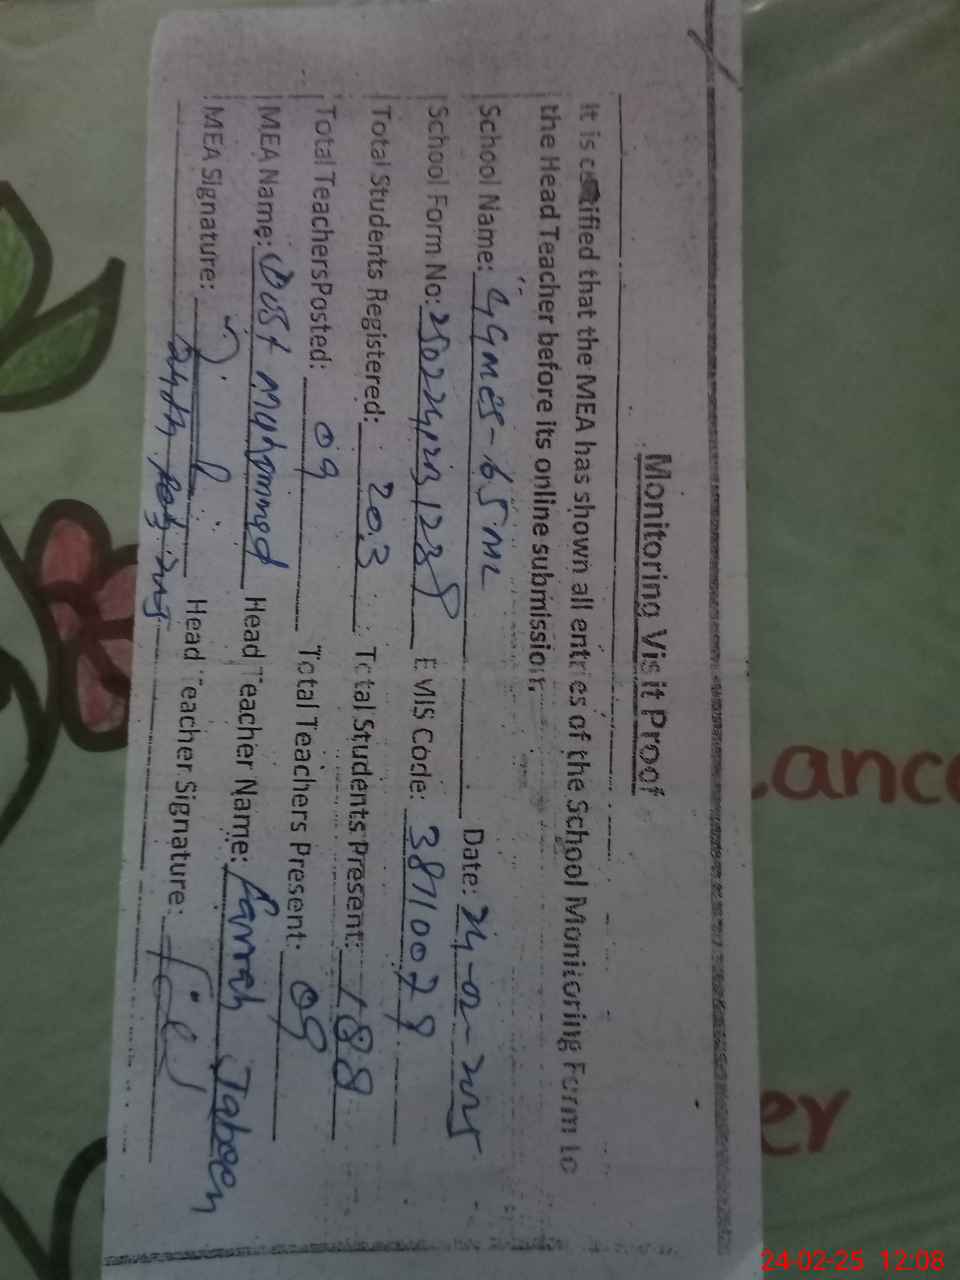 Monitoring Visit Proof
It is certified that the MEA has shown all entries of the School Monitoring Form to
the Head Teacher before its online submission.
School Name: GGMES-65ML Date: 24-02-2025
School Form No: EMIS Code: 38710078
Total Students Registered: 203 Total Students Present: 188
Total TeachersPosted: 09 Total Teachers Present: 09
MEA Name: Dost Muhammad Head Teacher Name: Farrah Jabeen
MEA Signature: Head Teacher Signature:
ance
er
24-02-25 12:08